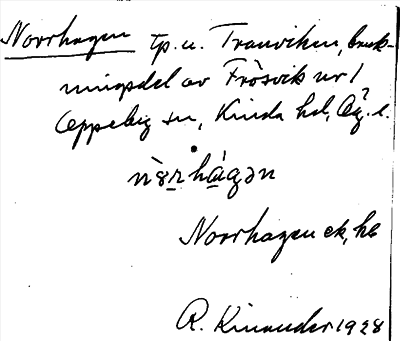 Norrhagen tp. u. Tranviken, bruk-
ningsdel av Frösvik nr 1
Oppeby sn, Kinda hd, Ög. l.
Norrhagen ek, hb
R. Kinander 1928